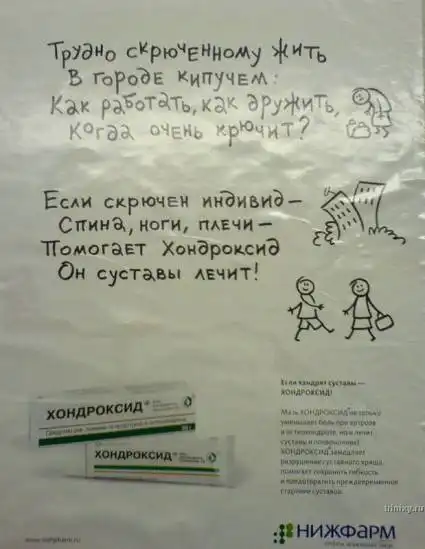 Трудно скрюченному жить
В городе кипучем:
Как работать, как дружить,
Когда очень крючит?
Если скрючен индивид –
Спина, ноги, плечи –
Помогает Хондроксид
Он суставы лечит!
ХОНДРОКСИД®
ХОНДРОКСИД®
Если хандрят суставы —
ХОНДРОКСИД!
Мазь ХОНДРОКСИД® не только
уменьшает боль при артрозе
и остеохондрозе, но и лечит
суставы и позвоночник!
ХОНДРОКСИД® замедляет
разрушение суставного хряща,
помогает сохранить гибкость
и предотвратить преждевременное
старение суставов.
trinixy.ru
www.nizhpharm.ru
НИЖФАРМ